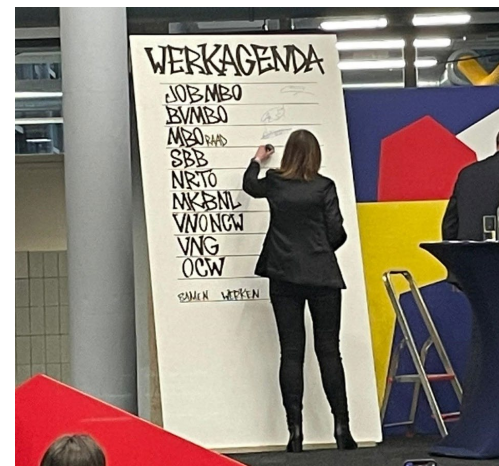 WERKAGENDA
JOBMBO
BVMBO
MBO RAAD
SBB
NRTO
MKBNL
VNONCW
VNG
OCW
SAMEN WERKEN